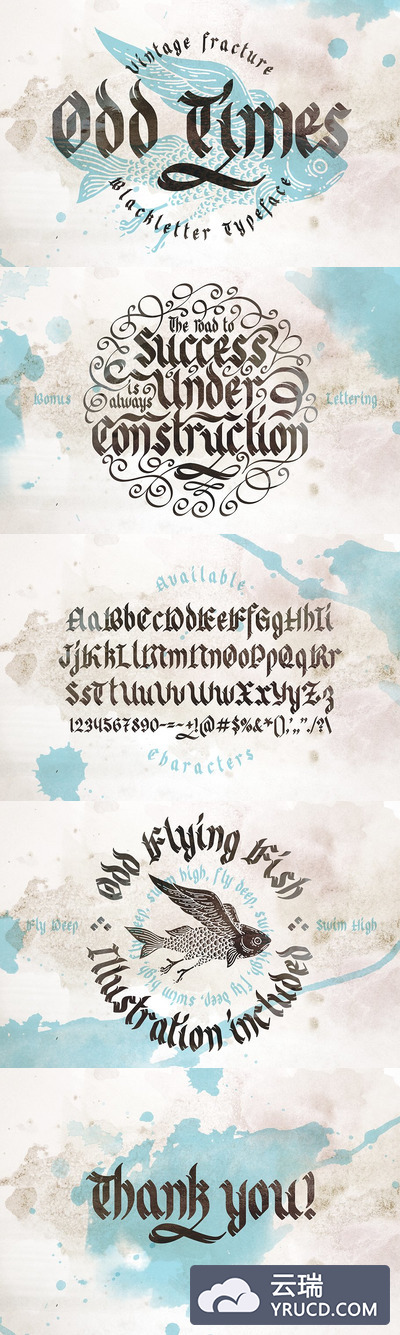 Vintage fracture
Odd Times
Blackletter Typeface
The road to
Success
is always Under
Construction
Bonus
Lettering
Available
AaBbCcDdEeFfGgHhIi
JjKkLlMmNnOoPpQqRr
SsTtUuVvWwXxYyZz
1234567890-=~+!@#$%&*();'„"./?\
Characters
Odd Flying Fish
swim high, fly deep, swim high, fly deep, swim high, fly deep,
Fly Deep
Swim High
Illustration included
Thank you!
云瑞
YRUCD.COM